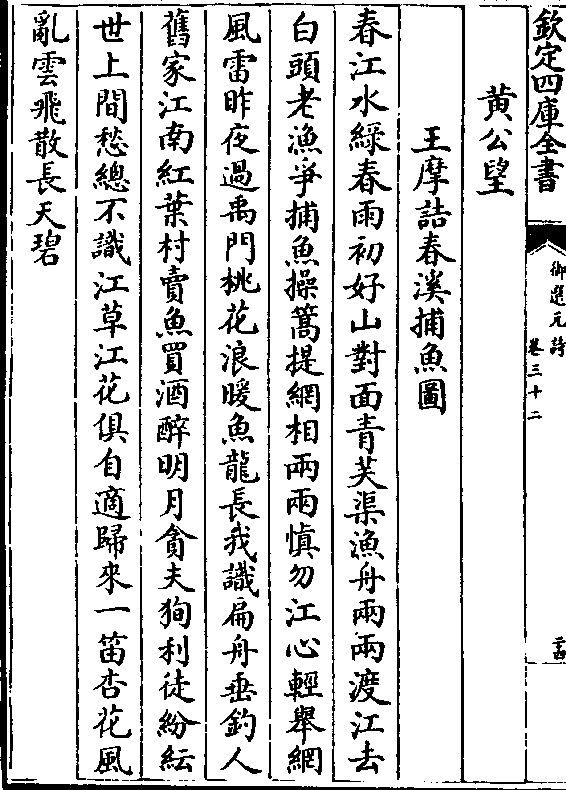 欽定四庫全書
御選元詩
卷三十二
黄公望
王摩詰春溪捕魚圖
春江水綠春雨初好山對面青芙渠漁舟兩兩渡江去
白頭老漁爭捕魚操篙提網相兩兩慎勿江心輕舉網
風雷昨夜過禹門桃花浪暖魚龍長我識扁舟垂釣人
舊家江南紅葉村賣魚買酒醉明月貪夫狥利徒紛紜
世上間愁總不識江草江花俱自適歸來一笛杏花風
亂雲飛散長天碧